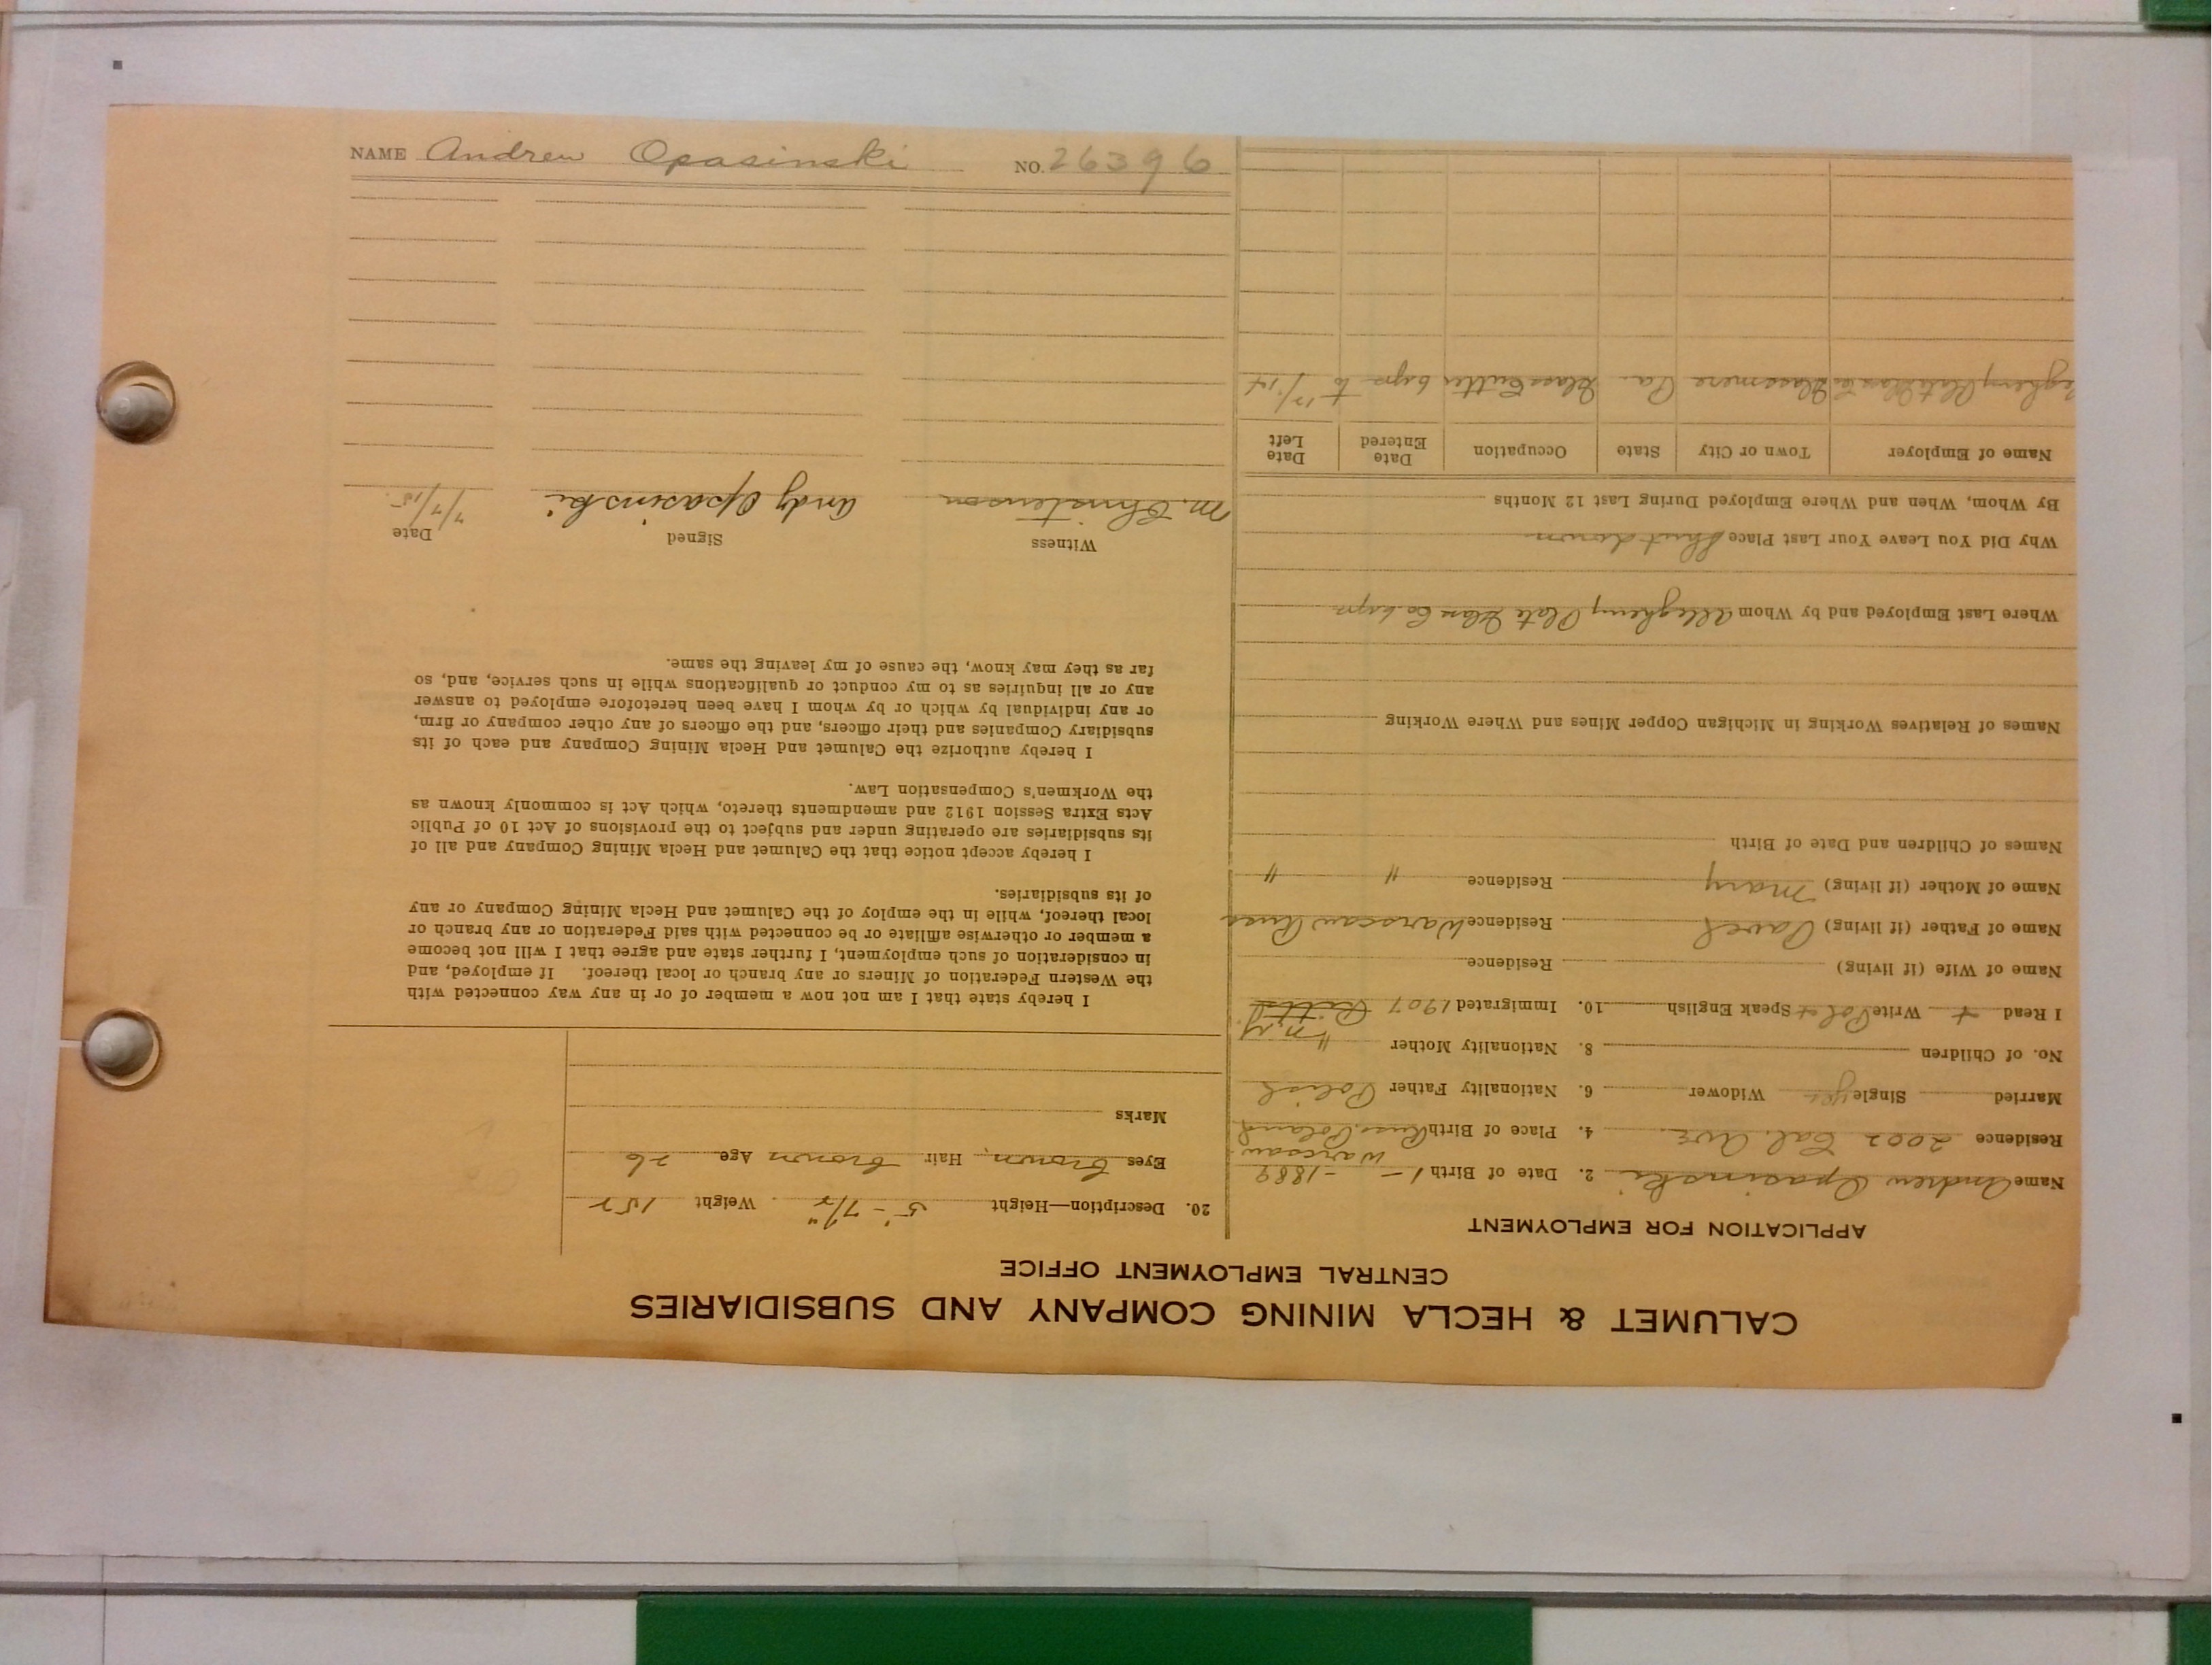 CALUMET & HECLA MINING COMPANY AND SUBSIDIARIES
CENTRAL EMPLOYMENT OFFICE
APPLICATION FOR EMPLOYMENT
Name Andrew Opasinski 2. Date of Birth 1 - - 1889
Residence 2002 Cal. Ave. 4. Place of Birth Russ. Poland Warsaw
Married Single yes Widower 6. Nationality Father Polish
No. of Children 8. Nationality Mother "
I Read + Write Pol + Speak English 10. Immigrated 1907 N.Y.
Name of Wife (if living) Residence
Name of Father (if living) Pavel Residence Warsaw Russ
Name of Mother (if living) Mary Residence " "
Names of Children and Date of Birth
Names of Relatives Working in Michigan Copper Mines and Where Working
Where Last Employed and by Whom Allegheny Plate Glass Co 6 yrs
Why Did You Leave Your Last Place Shut down
By Whom, When and Where Employed During Last 12 Months
Name of Employer Town or City State Occupation Date Entered Date Left
egheny Plate Glass Co Glassmere Pa. Glass Cutter 6 yrs to
20. Description—Height 5' - 7 1/2" Weight 152
Eyes brown, Hair brown Age 26
Marks
I hereby state that I am not now a member of or in any way connected with
the Western Federation of Miners or any branch or local thereof. If employed, and
in consideration of such employment, I further state and agree that I will not become
a member or otherwise affiliate or be connected with said Federation or any branch or
local thereof, while in the employ of the Calumet and Hecla Mining Company or any
of its subsidiaries.
I hereby accept notice that the Calumet and Hecla Mining Company and all of
its subsidiaries are operating under and subject to the provisions of Act 10 of Public
Acts Extra Session 1912 and amendments thereto, which Act is commonly known as
the Workmen's Compensation Law.
I hereby authorize the Calumet and Hecla Mining Company and each of its
subsidiary Companies and their officers, and the officers of any other company or firm,
or any individual by which or by whom I have been heretofore employed to answer
any or all inquiries as to my conduct or qualifications while in such service, and, so
far as they may know, the cause of my leaving the same.
Witness Signed Date
M. Christenson Andy Opasinski 7/7/15.
NAME Andrew Opasinski NO. 26396